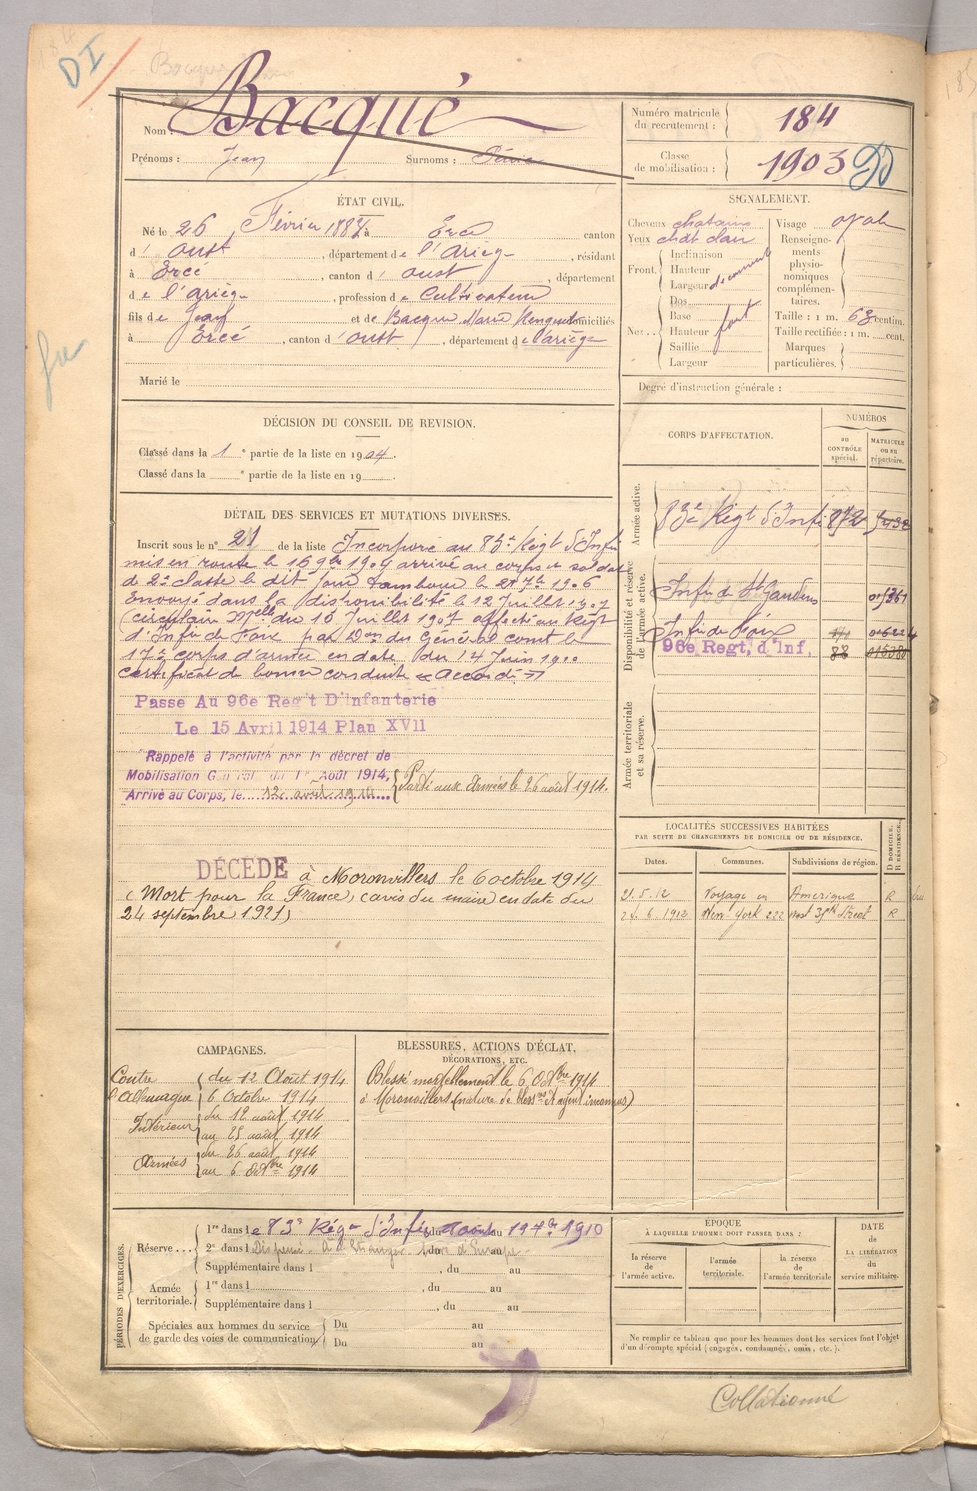 DI
Nom : Bacqué
Prénoms : Jean Surnoms :
Numéro matricule du recrutement : 184
Classe de mobilisation : 1903
ÉTAT CIVIL.
Né le 26 Février 188 à Ercé canton
d'Oust, département de l'Ariège, résidant
à Ercé, canton d'Oust, département
de l'ariège, profession de Cultivateur
fils de Jean et de Bacque Marie domiciliés
à Ercé, canton d'Oust, département de l'ariège
Marié le
SIGNALEMENT.
Cheveux chatains
Yeux chat clair
Front. Inclinaison
Hauteur
Largeur
Nez... Dos
Base
Hauteur fort
Saillie
Largeur
Visage oval
Renseignements physionomiques complémentaires.
Taille : 1 m. 63 centim.
Taille rectifiée : 1 m. cent.
Marques particulières.
Degré d'instruction générale :
DÉCISION DU CONSEIL DE REVISION.
Classé dans la 1e partie de la liste en 1904.
Classé dans la e partie de la liste en 19
DÉTAIL DES SERVICES ET MUTATIONS DIVERSES.
Inscrit sous le n° 21 de la liste Incorporé au 83e Régt d'Infie
mis en route le 16 9bre 1904 arrivé au corps et soldat
de 2e classe le dit jour tambour le 7bre 1906
Envoyé dans la disponibilité le 12 Juillet 1907
(circulaire Mtelle du 10 Juillet 1907 affecté au Régt
d'Infie de Foix par Don du Général comt le
17e corps d'armée en date du 14 Juin 1910
certificat de bonne conduite « accordé »
Passe Au 96e Reg't D'infanterie
Le 15 Avril 1914 Plan XVII
Rappelé à l'activité par le décret de
Mobilisation Générale du 1er Août 1914.
Arrivé au Corps, le 12 août 1914
Parti aux Armées le 26 août 1914.
DÉCÉDÉ à Moronvillers le 6 octobre 1914
(Mort pour la France) (avis du maire en date du
24 septembre 1921)
CORPS D'AFFECTATION.
NUMÉROS
au contrôle spécial.
MATRICULE ou au répertoire.
Armée active.
83e Régt d'Infie 872
Disponibilité et réserve de l'armée active.
Infie de St Gaudens
Infie de Foix
96e Regt. d'Inf. 88
Armée territoriale et sa réserve.
LOCALITÉS SUCCESSIVES HABITÉES
PAR SUITE DE CHANGEMENTS DE DOMICILE OU DE RÉSIDENCE.
Dates. Communes. Subdivisions de région. D DOMICILE. R RÉSIDENCE.
21.5.12 Voyage en Amérique R
24.6.1912 New-York 222 West 35th Street R
CAMPAGNES.
Contre l'Allemagne du 12 Août 1914
6 Octobre 1914
Intérieur du 12 août 1914
au 25 août 1914
Armées du 26 août 1914
au 6 Octbre 1914
BLESSURES, ACTIONS D'ÉCLAT,
DÉCORATIONS, ETC.
Blessé mortellement le 6 Octbre 1914
à Moronvillers (nature de blessre et agent inconnus)
PÉRIODES D'EXERCICES.
Réserve... 1re dans le 83e Rég d'Infie, du au 1910
2e dans l , du au
Supplémentaire dans l , du au
Armée territoriale. 1re dans l , du au
Supplémentaire dans l , du au
Spéciales aux hommes du service de garde des voies de communication
Du au
Du au
ÉPOQUE
À LAQUELLE L'HOMME DOIT PASSER DANS :
la réserve de l'armée active.
l'armée territoriale.
la réserve de l'armée territoriale
DATE de LA LIBÉRATION du service militaire.
Ne remplir ce tableau que pour les hommes dont les services font l'objet
d'un décompte spécial (engagés, condamnés, omis, etc.).
Collationné